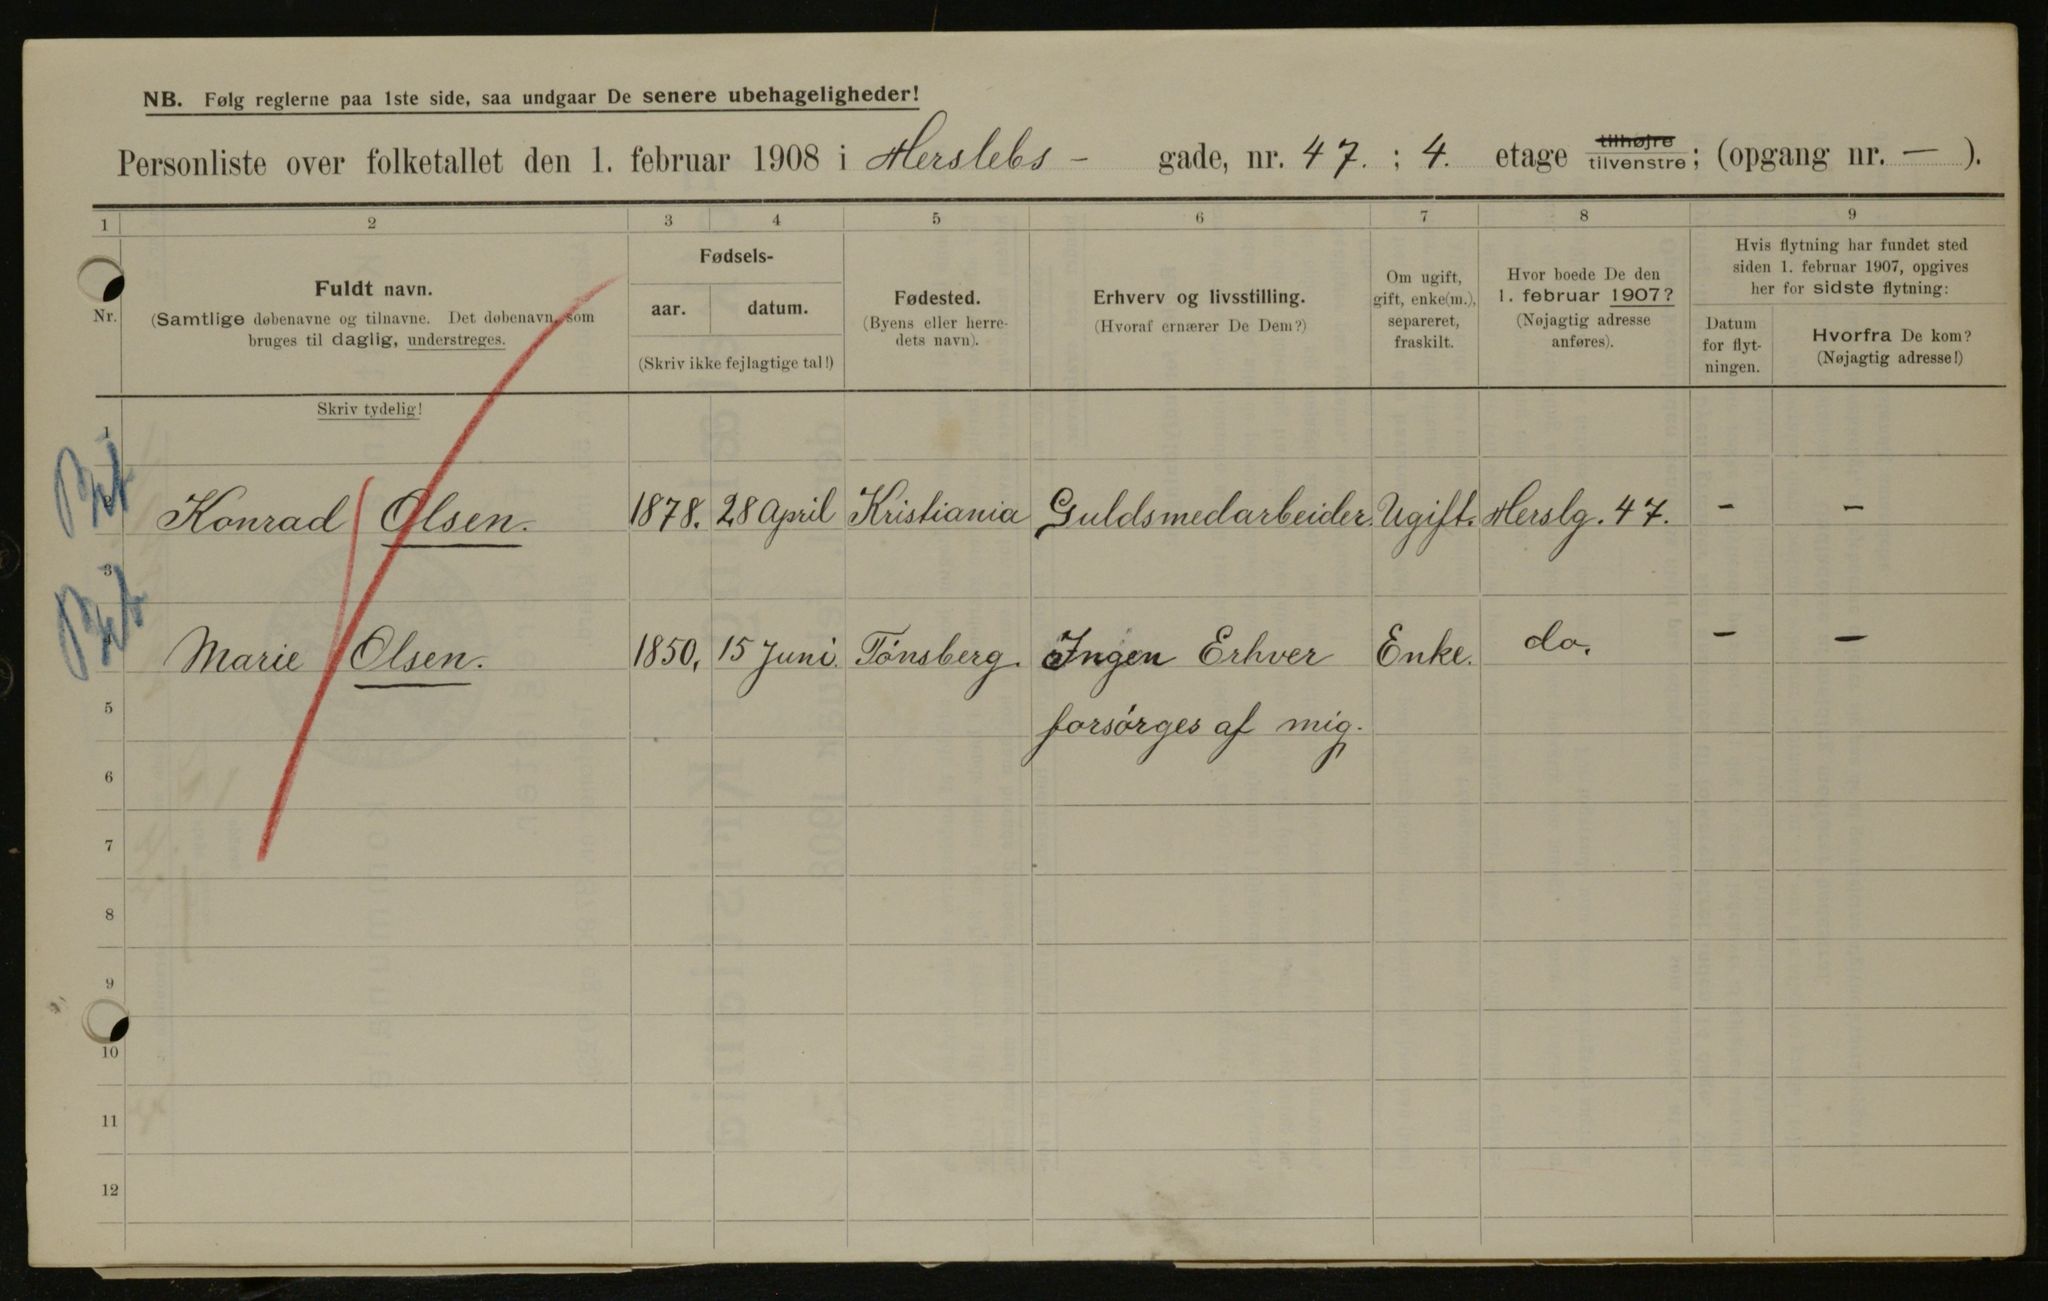 NB. Følg reglerne paa 1ste side, saa undgaar De senere ubehageligheder!
Personliste over folketallet den 1. februar 1908 i Herslebs - gade, nr. 47. ; 4. etage tilhøjre tilvenstre; (opgang nr. — ).
1 2 3 4 5 6 7 8 9
Nr.
Fuldt navn.
(Samtlige døbenavne og tilnavne. Det døbenavn, som
bruges til daglig, understreges.
Skriv tydelig!
Fødsels-
aar. datum.
(Skriv ikke fejlagtige tal!)
Fødested.
(Byens eller herre-
dets navn).
Erhverv og livsstilling.
(Hvoraf ernærer De Dem?)
Om ugift,
gift, enke(m.),
separeret,
fraskilt.
Hvor boede De den
1. februar 1907?
(Nøjagtig adresse
anføres).
Hvis flytning har fundet sted
siden 1. februar 1907, opgives
her for sidste flytning:
Datum
for flyt-
ningen.
Hvorfra De kom?
(Nøjagtig adresse!)
1
2 Konrad Olsen. 1878. 28 April Kristiania Guldsmedarbeider. Ugift. Herslg. 47. - -
3
4 Marie Olsen. 1850, 15 Juni. Tönsberg. Ingen Erhver Enke. do. - -
5 forsörges af mig.
6
7
8
9
10
11
12